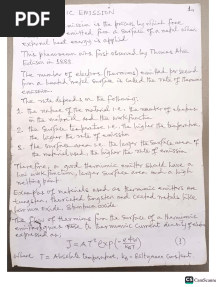 PDF
IC EMISSION
emission is the process by which free
emitted from the surface of a metal when
external heat energy is applied.
This phenomenon was first observed by Thomas Alva
Edison in 1883
The number of electrons (thermions) emitted per second
from a heated metal surface is called the rate of thermionic
emission.
The rate depends on the following:
1. the nature of the material i.e., the number of electrons
in the material and the work function
2. the surface temperature i.e. the higher the temperature,
the larger the rate of emission
3. the surface area i.e. the larger the surface area of
the material used, the higher the rate of emission.
Therefore, a good thermionic emitter should have a
low work function, larger surface area and a high
melting point.
Examples of materials used as thermionic emitters are
tungsten, thoriated tungsten and coated metals like
The flow of thermions from the surface of a thermionic
thermionic current density
expressed as,
(1)
where T = Absolute temperature, Boltzmann Constant
CS CamScanner